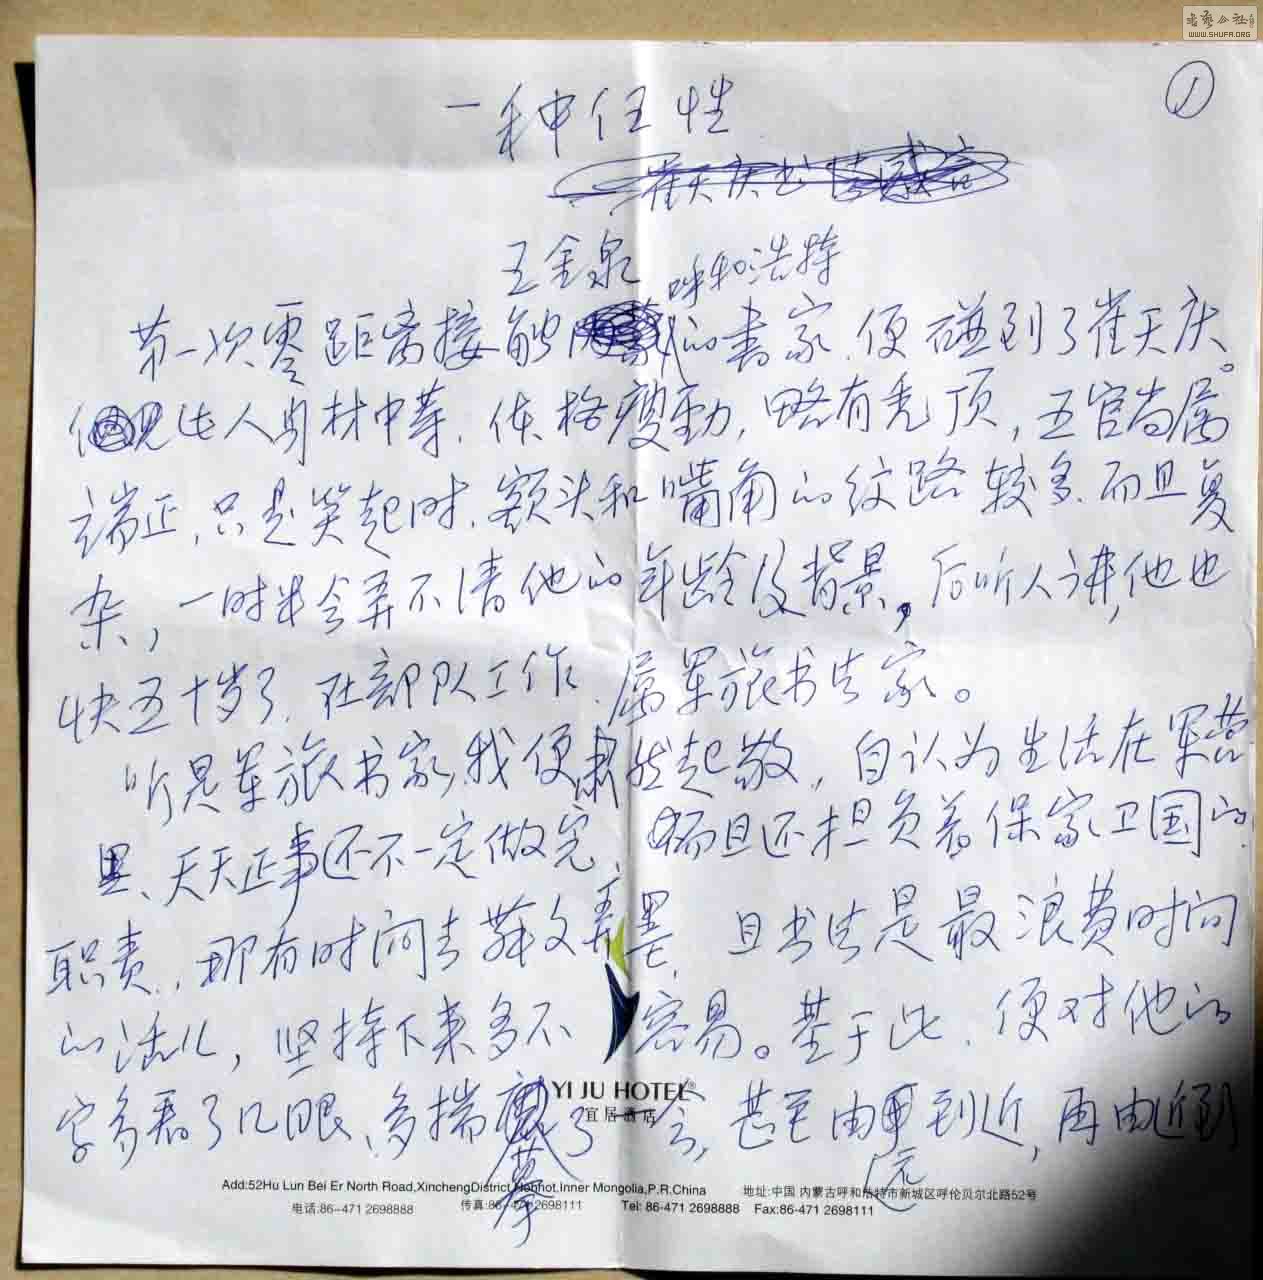 书艺公社
WWW.SHUFA.ORG
①
一种任性
崔天庆书
王金泉
呼和浩特
第一次零距离接触的书家,便碰到了崔天庆。
但见此人身材中等,体格瘦劲,略有秃顶,五官尚属
端正,只是笑起时,额头和嘴角的纹路较多,而且复
杂,一时半会弄不清他的年龄及背景,后听人讲,他也
快五十岁了,在部队工作,属军旅书法家。
听是军旅书家,我便肃然起敬,自认为生活在军营
里、天天正事还不一定做完,而且还担负着保家卫国的
职责,那有时间去舞文弄墨,且书法是最浪费时间
的活儿,坚持下来多不容易。基于此,便对他的
字多看了几眼、多揣摹了一会,甚至由远到近,再由近到
YI JU HOTEL®
宜居酒店
Add:52Hu Lun Bei Er North Road,XinchengDistrict,Hohhot,Inner Mongolia,P.R.China
地址:中国 内蒙古呼和浩特市新城区呼伦贝尔北路52号
电话:86-471 2698888 传真:86-471 2698111 Tel: 86-471 2698888 Fax:86-471 2698111